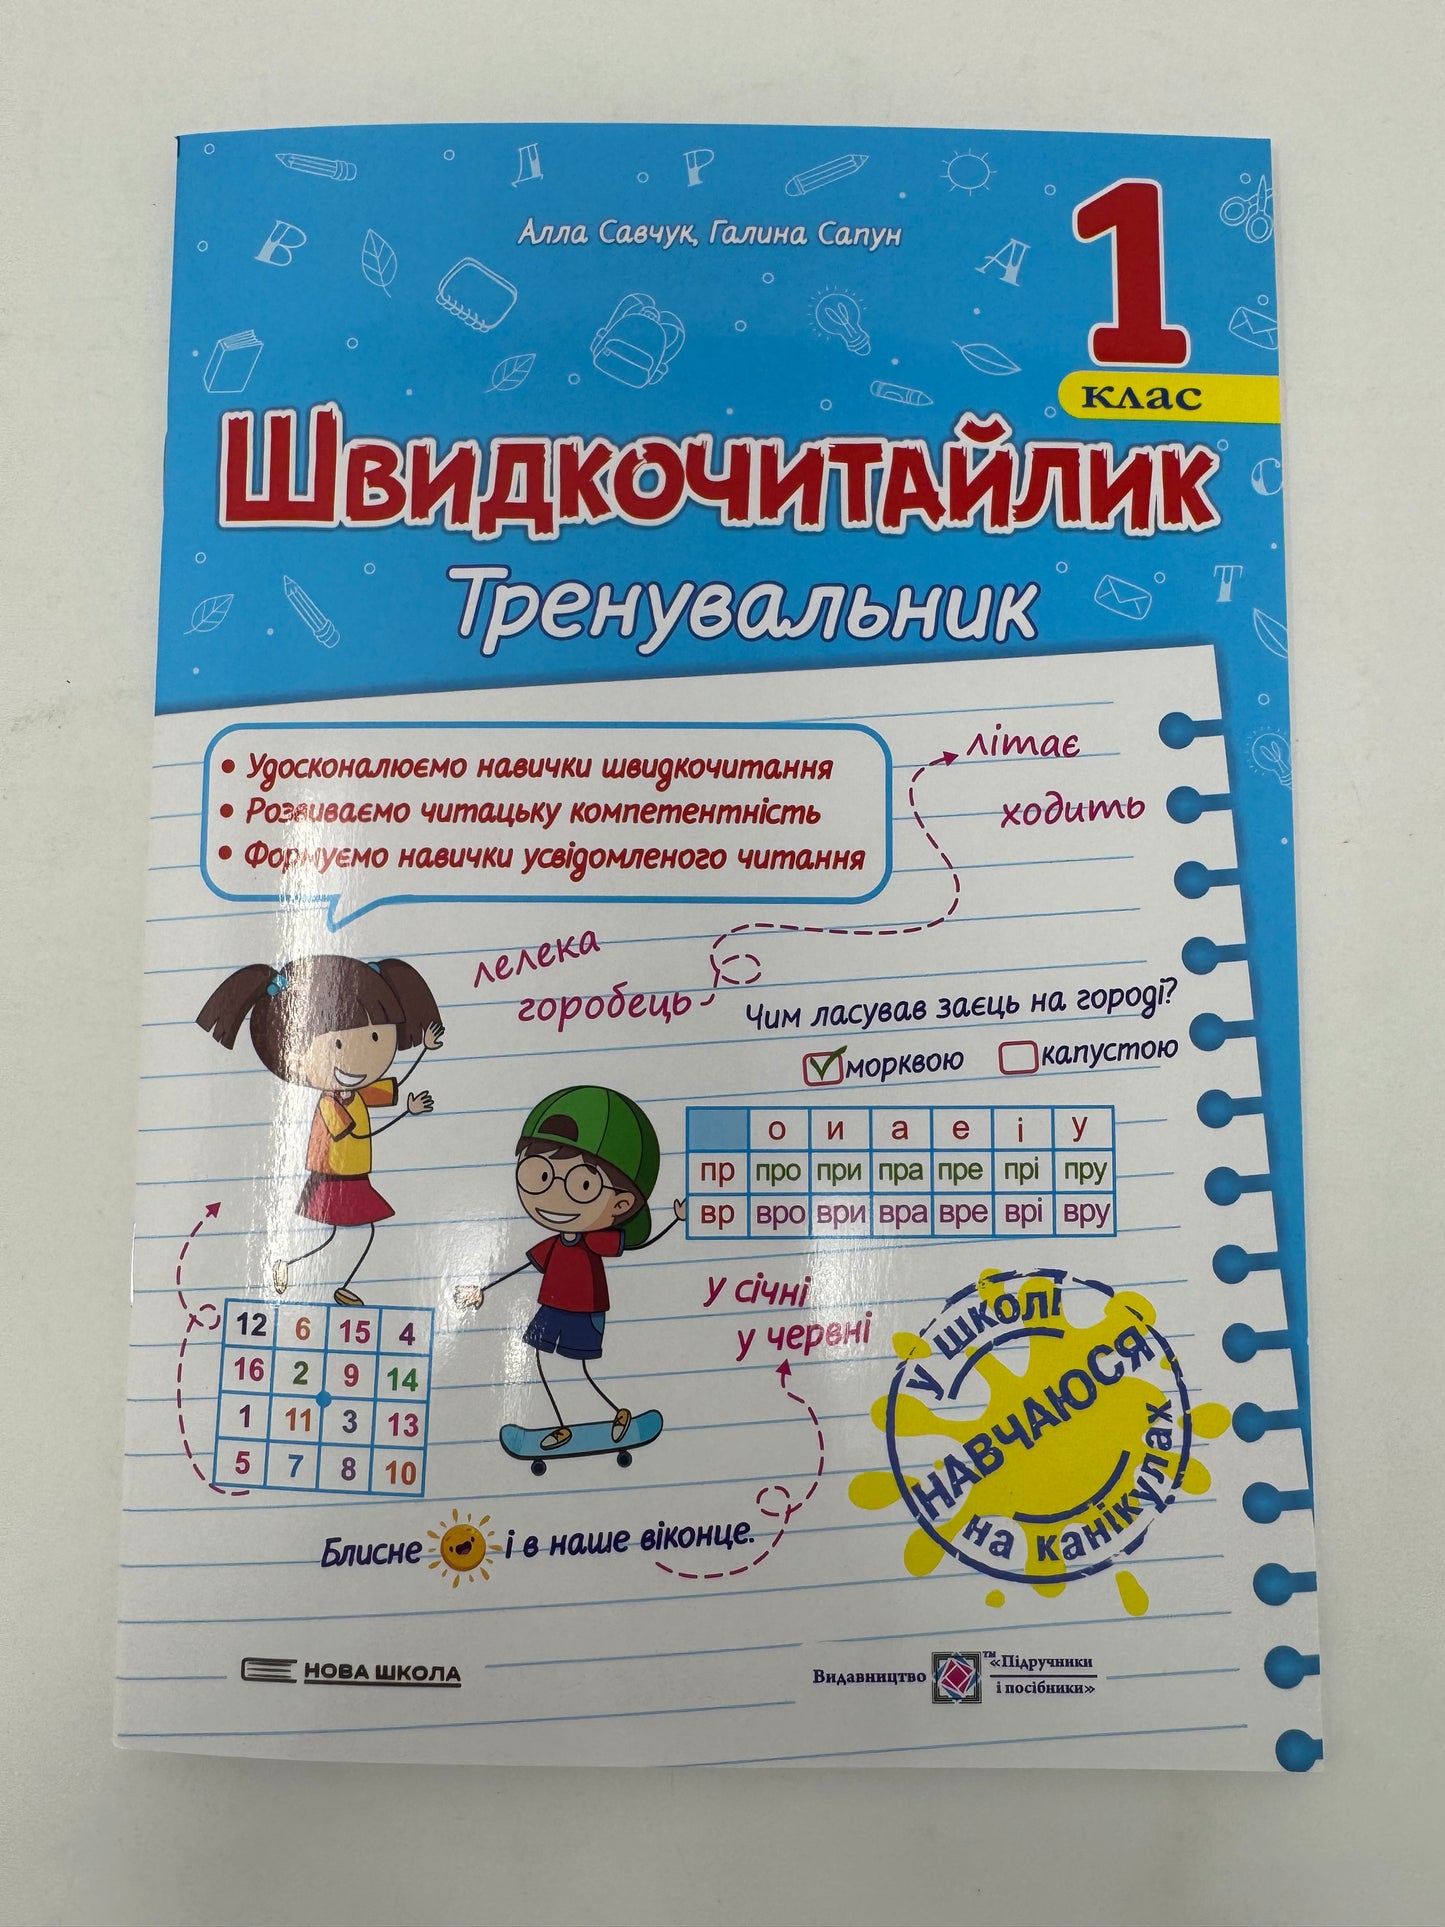 Алла Савчук, Галина Сапун
1
клас
Швидкочитайлик
Тренувальник
• Удосконалюємо навички швидкочитання
• Розвиваємо читацьку компетентність
• Формуємо навички усвідомленого читання
літає
ходить
лелека
горобець
Чим ласував заєць на городі?
морквою капустою
о и а е і у
пр про при пра пре прі пру
вр вро ври вра вре врі вру
у січні
у червні
12 6 15 4
16 2 9 14
1 11 3 13
5 7 8 10
у школі
НАВЧАЮСЯ
на канікулах
Блисне і в наше віконце.
НОВА ШКОЛА
Видавництво ™ «Підручники
і посібники»
В
Д
Р
А
С
Т